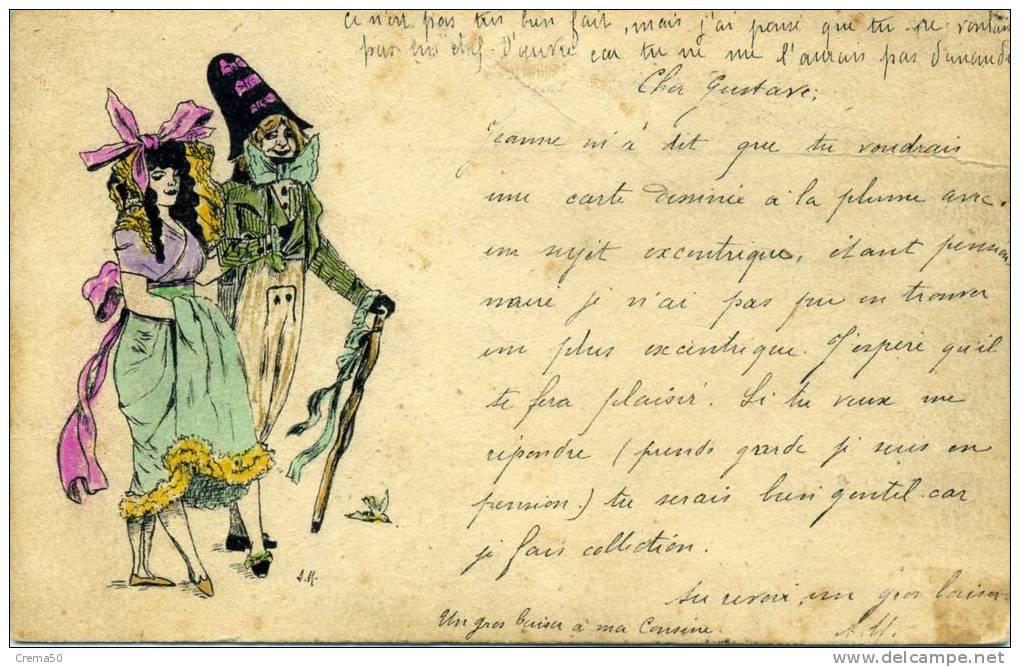 ce n'est pas très bien fait, mais j'ai pensé que tu ne voulais
pas un chef-d'œuvre car tu ne me l'aurais pas demandé
Cher Gustave,
Jeanne m'a dit que tu voudrais
une carte dessinée à la plume avec
un sujet excentrique, étant pension
naire je n'ai pas pu en trouver
un plus excentrique. J'espère qu'il
te fera plaisir. Si tu veux me
répondre (prends garde je suis en
pension.) tu serais bien gentil car
je fais collection.
Au revoir, un gros baiser
Un gros baiser à ma Cousine.
A.M.
A.M.
Crema50
delcampe.net